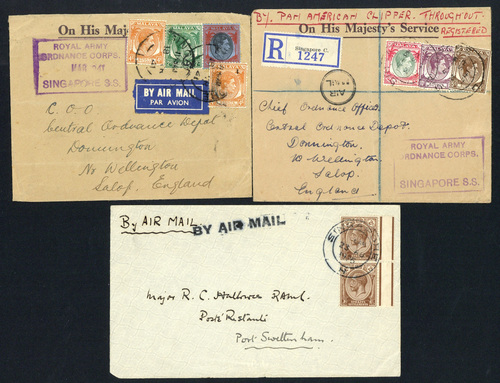 On His Maj
MALAYA
MALAYA
ROYAL ARMY
ORDNANCE CORPS.
MAR 1941
SINGAPORE S.S.
BY AIR MAIL
PAR AVION
C.O.O
Central Ordnance Depot
Donnington
Nr Wellington
Salop, England
BY. PAN AMERICAN CLIPPER. THROUGHOUT.
REGISTERED
On His Majesty's Service
R
Singapore C.
No 1247
AIR
MAIL
Chief Ordnance Officer
Central Ordnance Depot.
Donnington.
Nr Wellington.
Salop.
England.
ROYAL ARMY
RDNANCE CORPS.
SINGAPORE S.S.
By AIR MAIL
BY AIR MAIL
Major R. C.
Poste Restante
Port Swettenham.